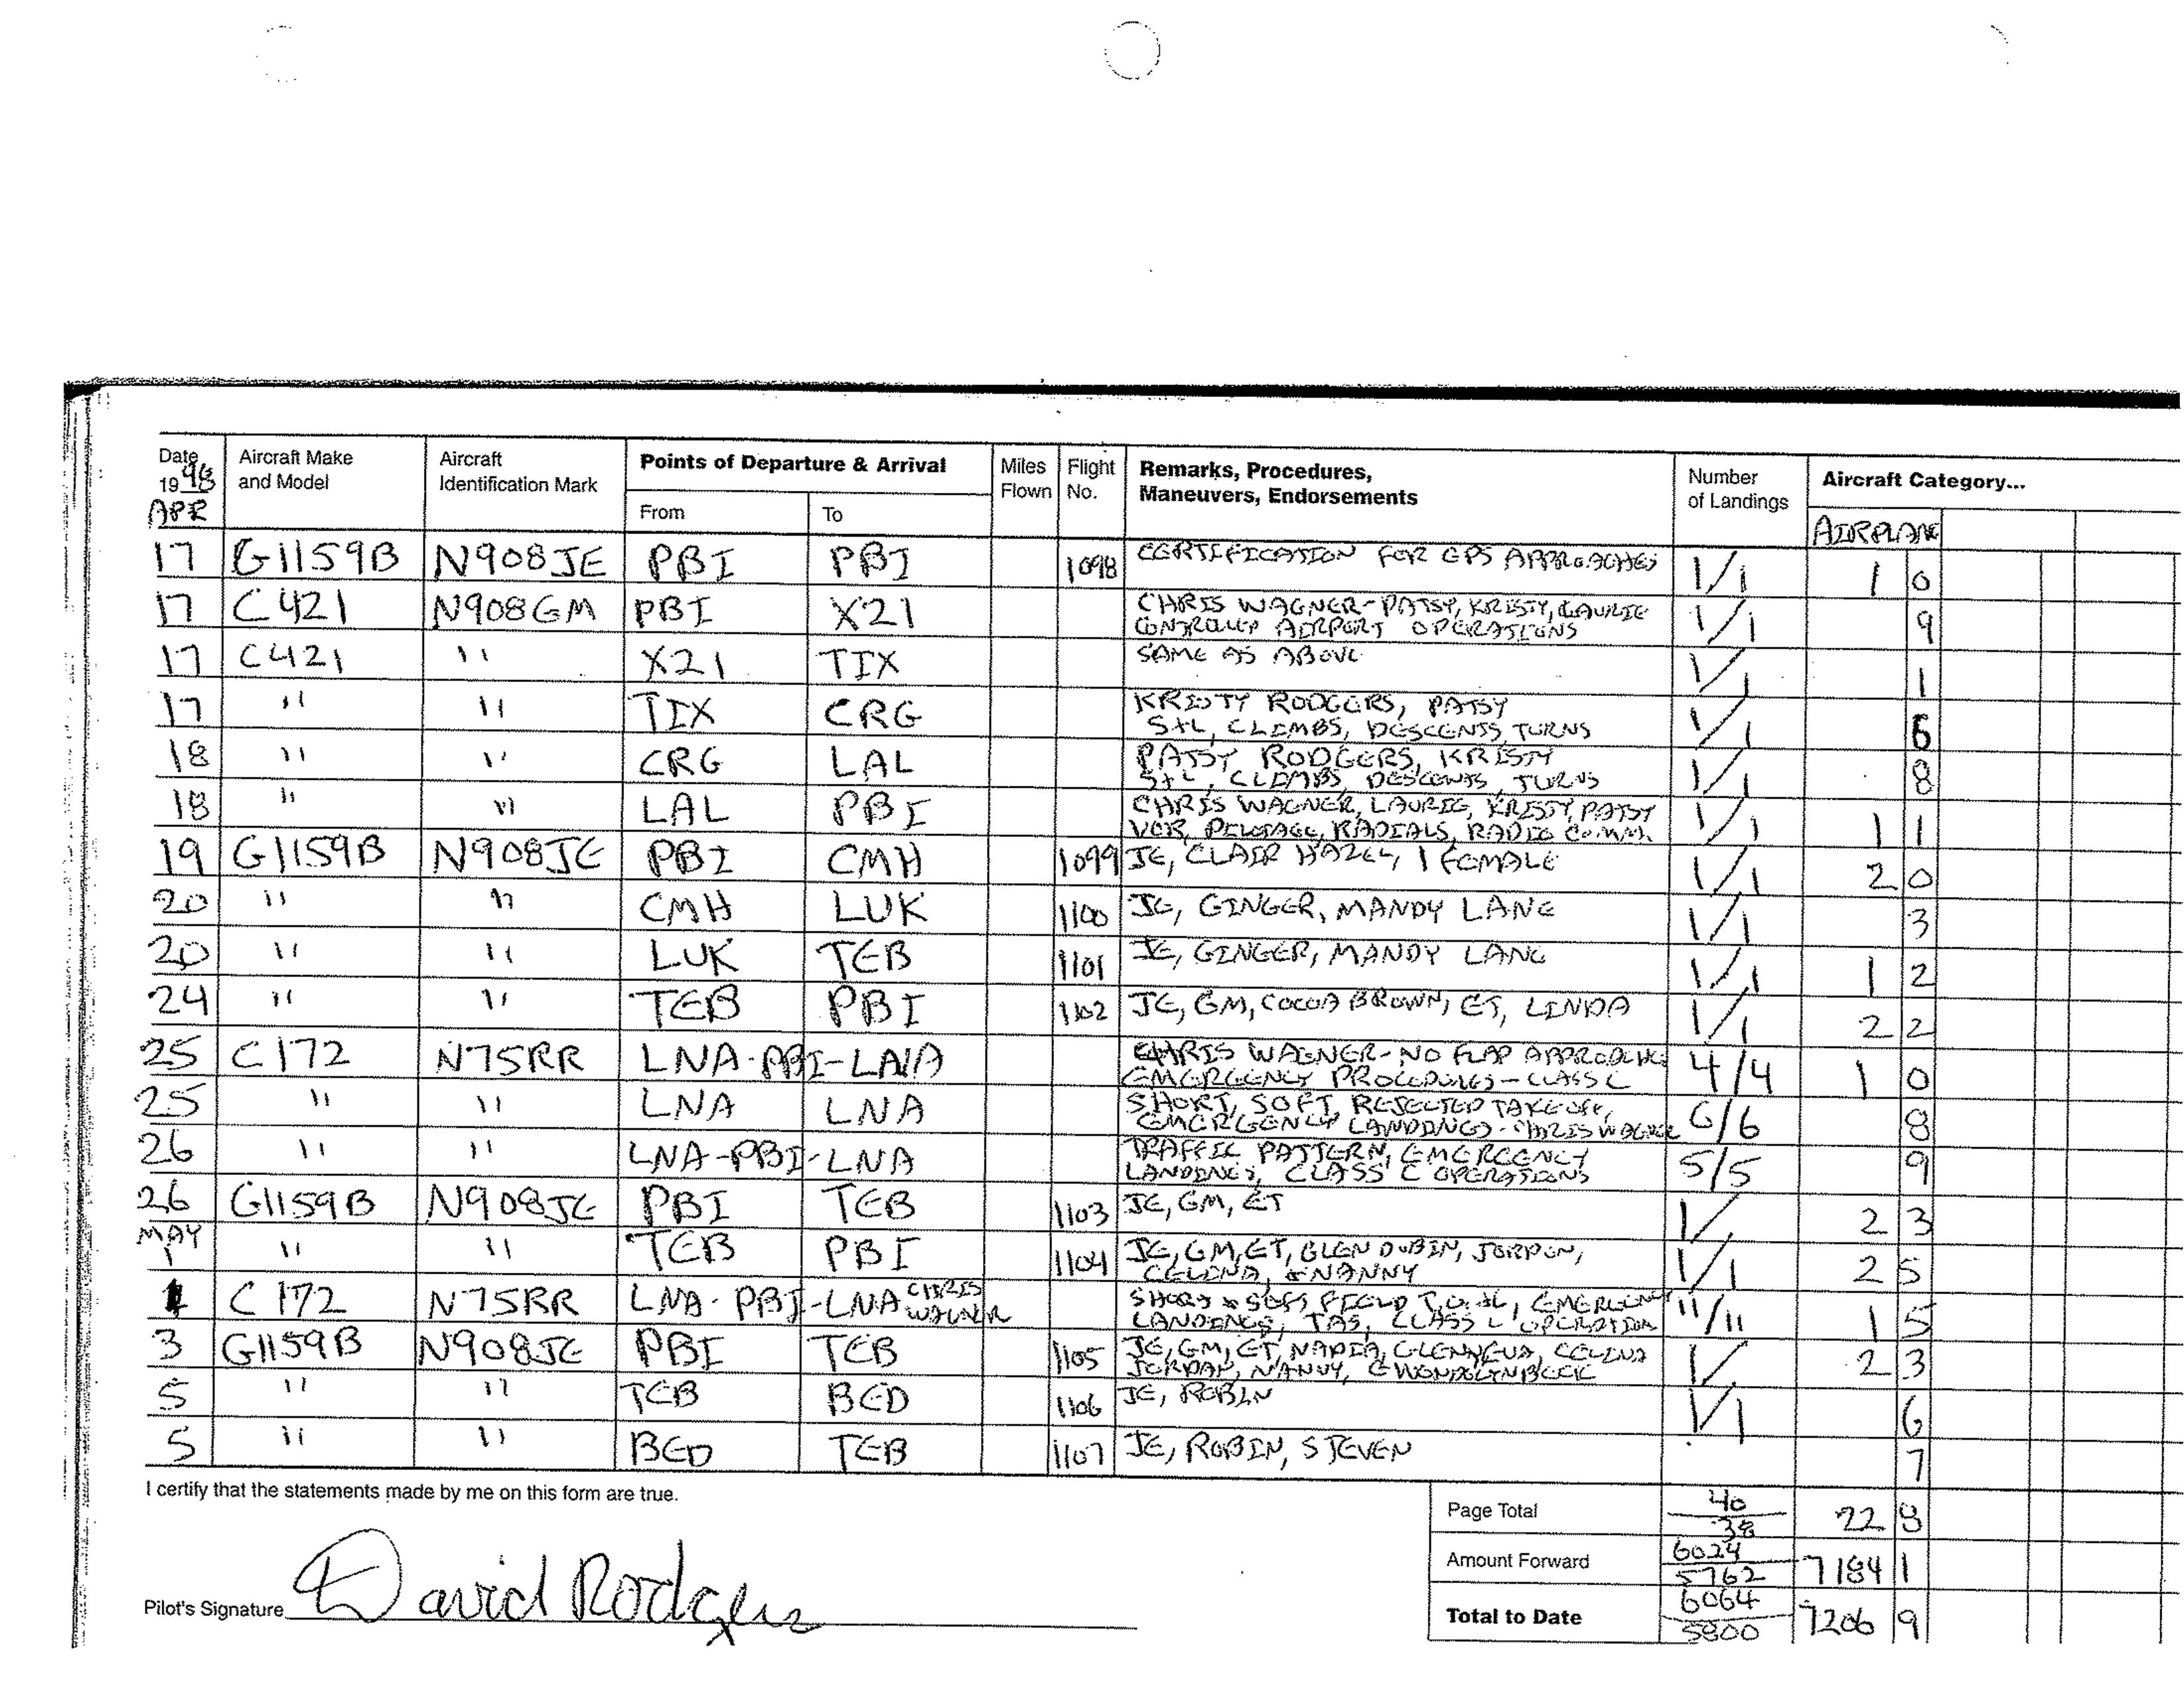 Date Aircraft Make Aircraft Points of Departure & Arrival Miles Flight Remarks, Procedures, Number Aircraft Category...
1998 and Model Identification Mark Flown No. Maneuvers, Endorsements of Landings
APR From To AIRPLANE
17 G1159B N908JE PBI PBI 1098 CERTIFICATION FOR GPS APPROACHES 1/1 1 0
17 C421 N908GM PBI X21 CHRIS WAGNER-PATSY, KRISTY, LAURIE 1/1 9
CONTROLLED AIRPORT OPERATIONS
17 C421 " X21 TIX SAME AS ABOVE 1/1 1
17 " " TIX CRG KRISTY RODGERS, PATSY 1/1 6
S+L, CLIMBS, DESCENTS, TURNS
18 " " CRG LAL PATSY RODGERS, KRISTY 1/1 8
S+L, CLIMBS, DESCENTS, TURNS
18 " " LAL PBI CHRIS WAGNER, LAURIE, KRISTY, PATSY 1/1 1 1
VOR, PILOTAGE, RADIALS, RADIO COMM.
19 G1159B N908JE PBI CMH 1099 JE, CLAIR HAZEL, 1 FEMALE 1/1 2 0
20 " " CMH LUK 1100 JE, GINGER, MANDY LANE 1/1 3
20 " " LUK TEB 1101 JE, GINGER, MANDY LANE 1/1 1 2
24 " " TEB PBI 1102 JE, GM, COCOA BROWN, ET, LINDA 1/1 2 2
25 C172 N75RR LNA-PBI-LNA CHRIS WAGNER-NO FLAP APPROACHES 4/4 1 0
EMERGENCY PROCEDURES-CLASS C
25 " " LNA LNA SHORT, SOFT, REJECTED TAKEOFF, 6/6 8
EMERGENCY LANDINGS-CHRIS WAGNER
26 " " LNA-PBI-LNA TRAFFIC PATTERN, EMERGENCY 5/5 9
LANDINGS, CLASS C OPERATIONS
26 G1159B N908JE PBI TEB 1103 JE, GM, ET 1/ 2 3
MAY
1 " " TEB PBI 1104 JE, GM, ET, GLEN DUBIN, JORDON, 1/1 2 5
CELINA, +NANNY
1 C172 N75RR LNA-PBI-LNA CHRIS WAGNER SHORT & SOFT FIELD T.O.+L, EMERGENCY 11/11 1 5
LANDINGS, TAS, CLASS C OPERATION
3 G1159B N908JE PBI TEB 1105 JE, GM, ET, NADIA, GLENN, EVA, CELINA 1/ 2 3
JORDAN, NANNY, GWENDOLYN BECK
5 " " TEB BED 1106 JE, ROBIN 1/1 6
5 " " BED TEB 1107 JE, ROBIN, STEVEN 7
I certify that the statements made by me on this form are true.
Page Total 40 / 38 22 8
Amount Forward 6024 / 5762 7184 1
Pilot's Signature David Rodgers
Total to Date 6064 / 5800 7206 9